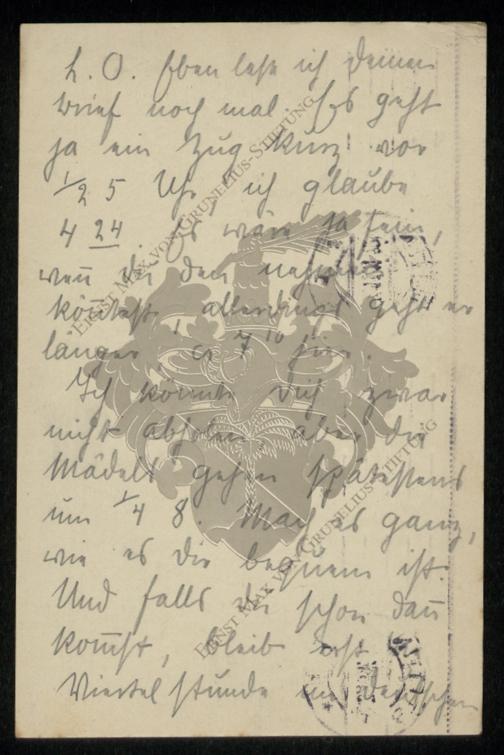 L. O. Eben lese ich Deinen
Brief noch mal. Es geht
ja ein Zug kurz vor
1/2 5 Uhr, ich glaube
4 24. Es wäre ja fein,
wen̅ du den nehmen
kön̅test, allerdings geht er
länger, 7 10 hier.
Ich könnte dich zwar
nicht abholen, aber die
Mädels gehen spätestens
um 1/4 8. Mach es ganz,
wie es dir bequem ist.
Und falls du schon dan̅
kom̅st, bleib erst
Viertelstunde
ERNST MAX VON GRUNELIUS-STIFTUNG
ERNST MAX VON GRUNELIUS-STIFTUNG